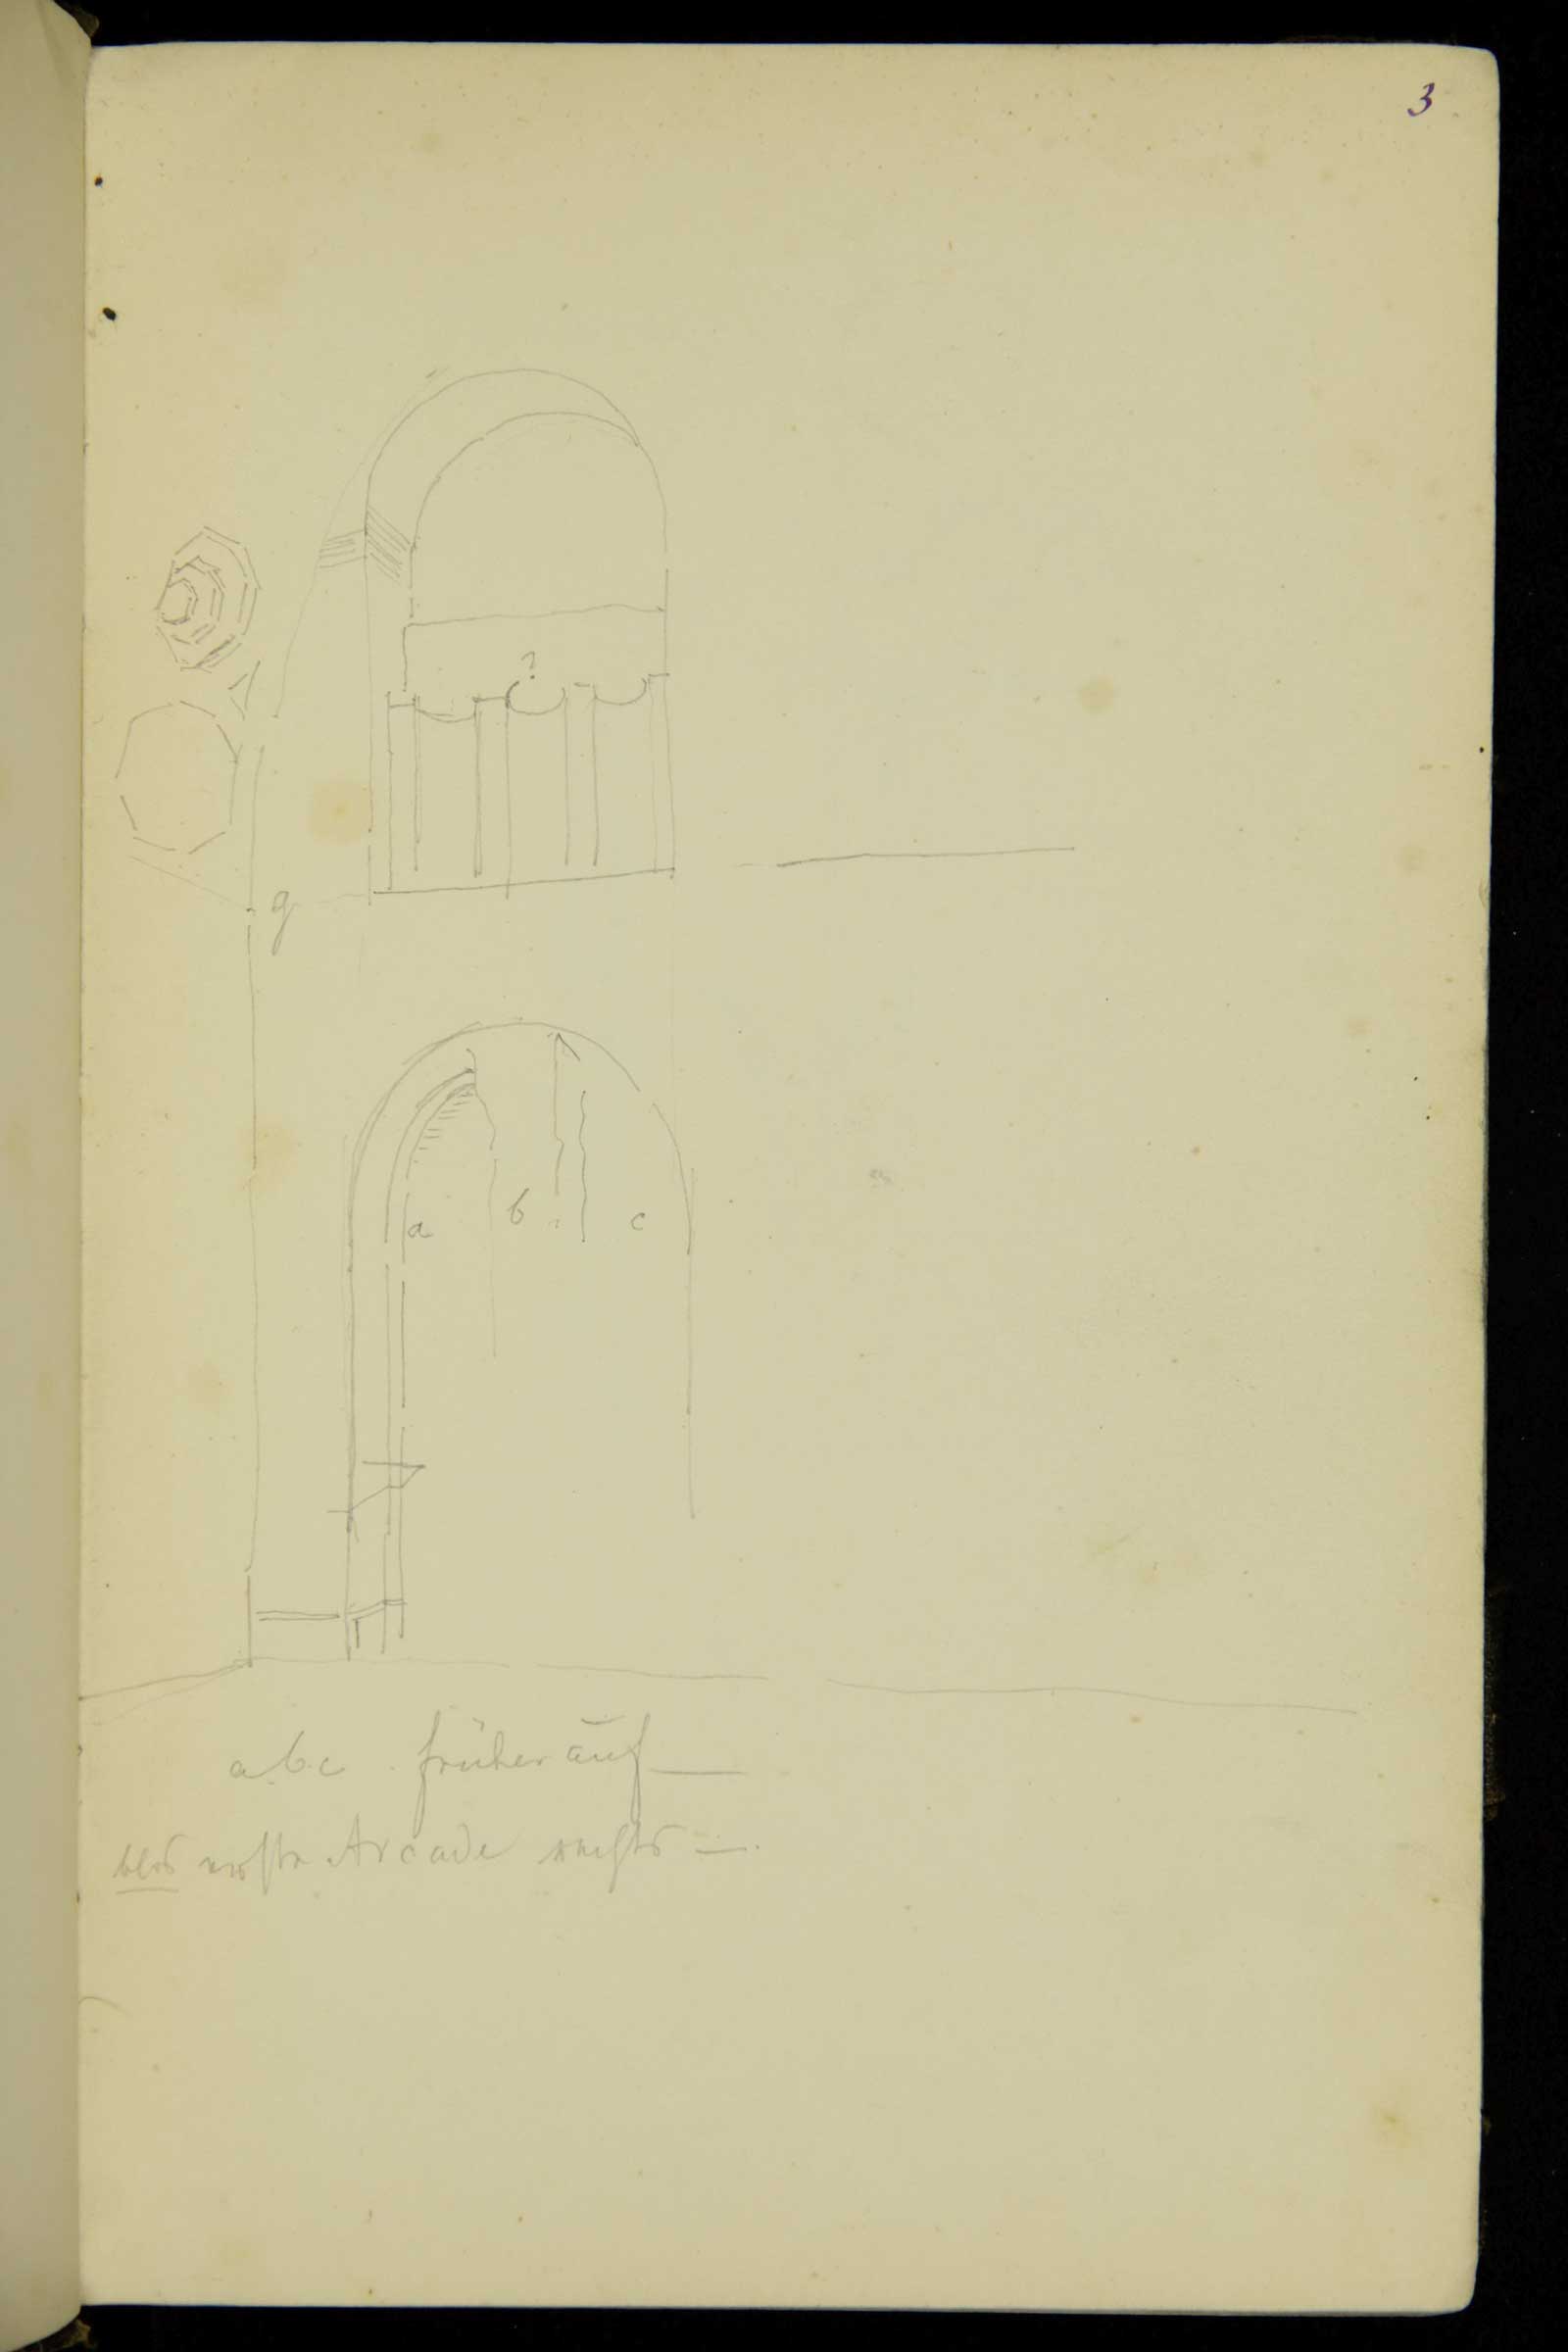 3
?
g
a b c
a.b.c. früher auf —
blos erste Arcade rechts —.